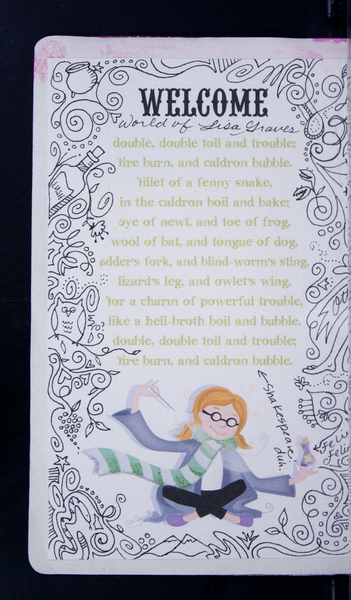 WELCOME
World of Lisa Graves
double, double toil and trouble;
fire burn, and caldron bubble.
fillet of a fenny snake,
in the caldron boil and bake;
eye of newt, and toe of frog,
wool of bat, and tongue of dog,
adder's fork, and blind-worm's sting,
lizard's leg, and owlet's wing,
for a charm of powerful trouble,
like a hell-broth boil and bubble.
double, double toil and trouble;
fire burn, and caldron bubble.
Shakespeare,
duh.